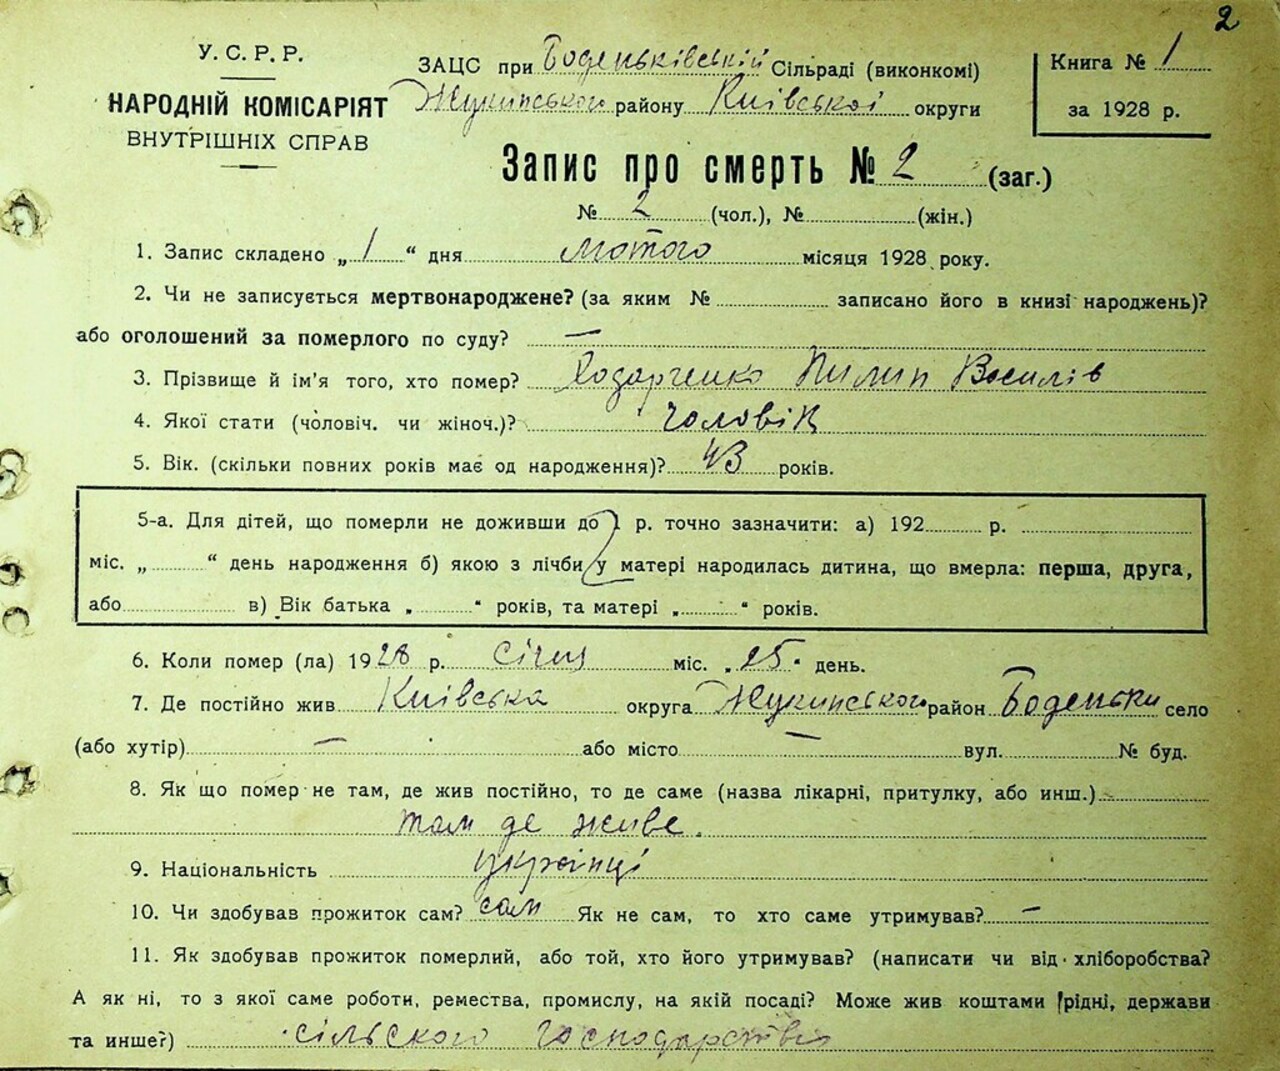 2
У. С. Р. Р.
НАРОДНІЙ КОМІСАРІЯТ
ВНУТРІШНІХ СПРАВ
ЗАЦС при Боденьківській Сільраді (виконкомі)
Жукинського району Київської округи
Книга № 1
за 1928 р.
Запис про смерть № 2 (заг.)
№ 2 (чол.), № (жін.)
1. Запис складено „ 1 “ дня лютого місяця 1928 року.
2. Чи не записується мертвонароджене? (за яким № записано його в книзі народжень)?
або оголошений за померлого по суду? —
3. Прізвище й ім'я того, хто помер? Пилип Василів
4. Якої стати (чоловіч. чи жіноч.)? чоловік
5. Вік. (скільки повних років має од народження)? 43 років.
5-а. Для дітей, що померли не доживши до 1 р. точно зазначити: а) 192 р.
міс. „ “ день народження б) якою з лічби у матері народилась дитина, що вмерла: перша, друга,
або в) Вік батька „ “ років, та матері „ “ років.
6. Коли помер (ла) 1928 р. січня міс. „ 25 “ день.
7. Де постійно жив Київська округа Жукинського район Боденьки село
(або хутір) — або місто — вул. № буд.
8. Як що помер не там, де жив постійно, то де саме (назва лікарні, притулку, або инш.)
там де живе.
9. Національність українці
10. Чи здобував прожиток сам? сам Як не сам, то хто саме утримував? —
11. Як здобував прожиток померлий, або той, хто його утримував? (написати чи від хліборобства?
А як ні, то з якої саме роботи, ремества, промислу, на якій посаді? Може жив коштами рідні, держави
та инше?) сільского господарствія